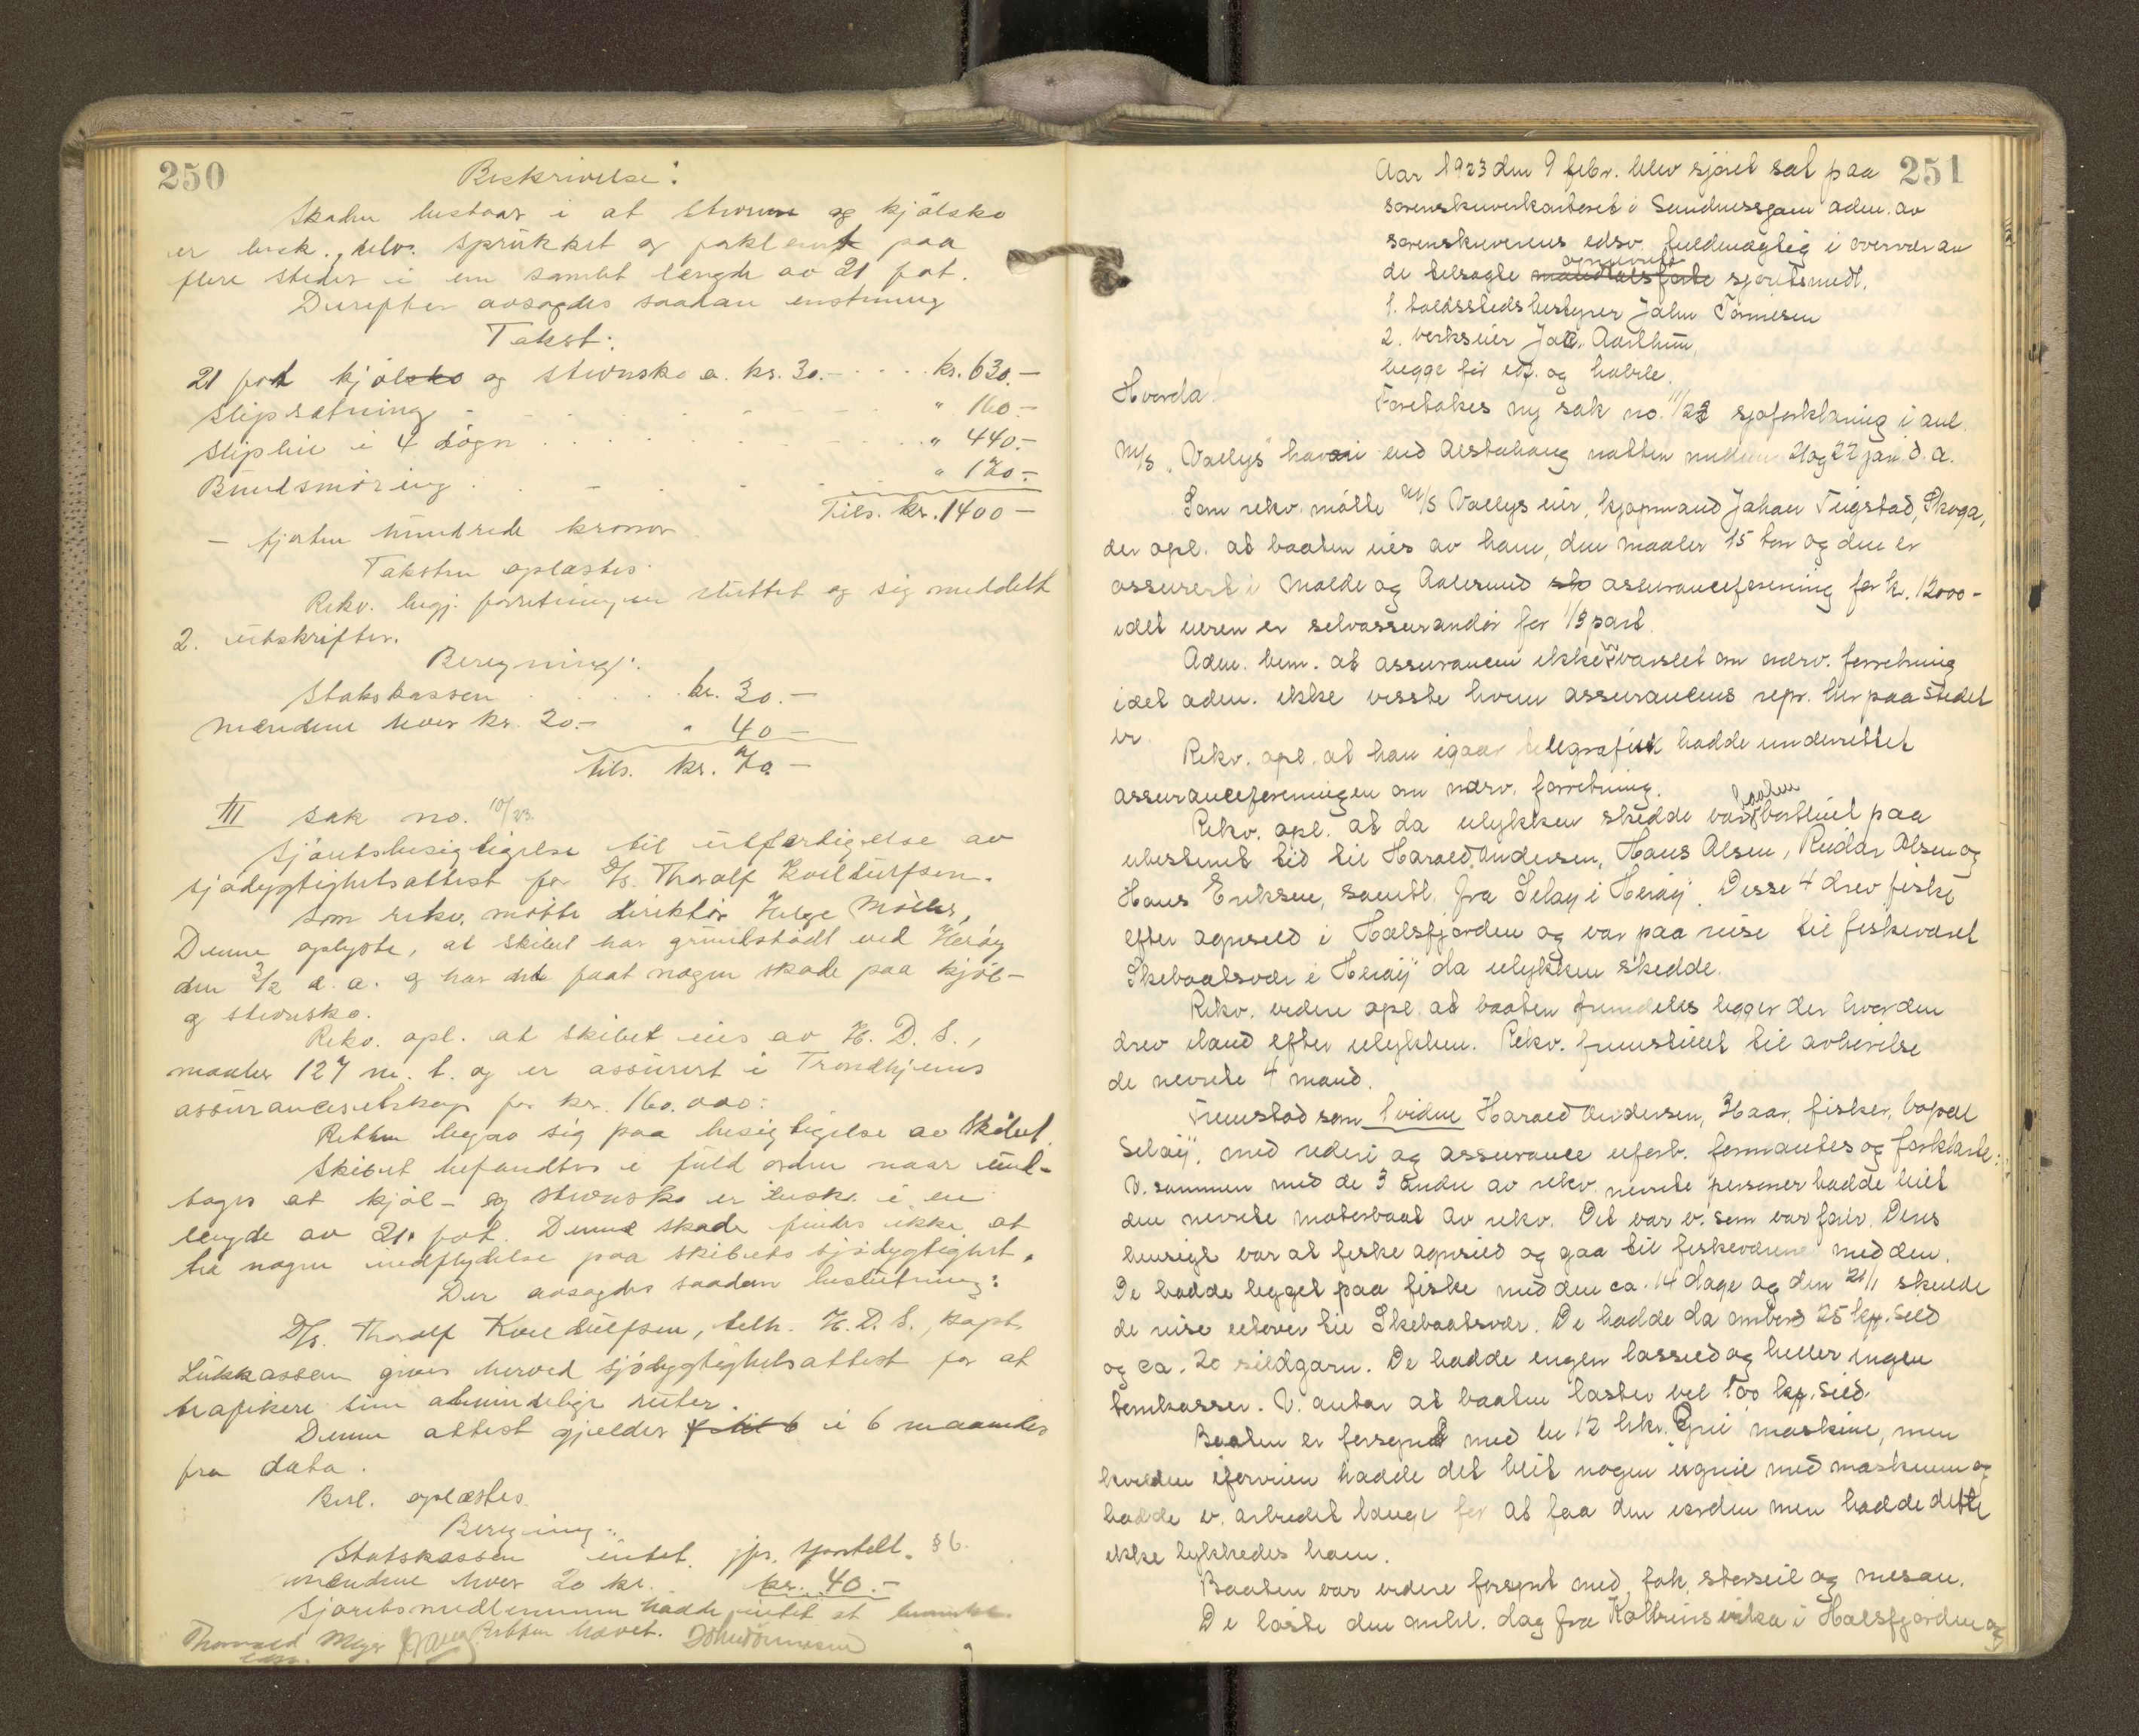 250
Beskrivelse:
Skaden bestaar i at stevn og kjølsko
er bræk., delv. sprukket og paa
flere steder i en samlet længde av 21 fot.
Derefter avsagdes saadan enstemmig
Takst:
21 fot kjølsko og stevnsko a. kr. 30.- . . . kr. 630.-
Slipsætning . . . " 160.-
Slipleie i 4 døgn . . . " 440.-
Bundsmøring . . . " 170.-
Tils. kr. 1400 -
- fjorten hundrede kroner
Taksten oplæstes.
Rekv. begj. forretningen sluttet og sig meddelt
2. utskrifter.
Beregning:
Statskassen . . . kr. 30.-
Mændene hver kr. 20.- " 40 -
tils. kr. 70 -
III sak no. 10/23.
Sjøretsbesigtigelse til utfærdigelse av
sjødygtighetsattest for D/s. Thoralf Kveldulfsen.
Som rekv. møtte direktør Helge Møller,
Denne oplyste, at skibet har grundstødt ved Herøy
den 3/2 d. a. og har det faat nogen skade paa kjøl-
og stevnsko.
Rekv. opl. at skibet eies av H. D. S.,
maaler 127 n. t. og er assurert i Trondhjems
assuranceselskap for kr. 160.000:
Retten begav sig paa besigtigelse av skibet.
Skibet befandtes i fuld orden naar und-
tages at kjøl- og stevnsko er bræk. i en
lengde av 21 fot. Denne skade findes ikke at
ha nogen indflydelse paa skibets sjødygtighet.
Der avsagdes saadan beslutning:
D/s. Thoralf Kveldulfsen, tilh. H. D. S., kapt.
Lukkassen gives herved sjødygtighetsattest for at
trafikere sine almindelige ruter.
Denne attest gjelder i 6 maaneder
fra dato.
Besl. oplæstes
Beregning:
Statskassen intet. jfr. sportell. § 6.
Mændene hver 20 kr. kr. 40.-
Sjøretsmedlemmene hadde intet at bemerke.
Thorvald Meyer Retten hævet. John Tønnesen
251
Aar 1923 den 9 febr. blev sjøret sat paa
sorenskriverkontoret i Sandnessjøen adm. av
sorenskriverens edsv. fuldmægtig i overvær av
opnævnte
de tilsagte mandtalsførte sjøretsmedl.
1. toldstedsbestyrer John Tønnesen
2. verkseier Jac. Aarthun,
begge før eds. og habile.
Hvorda!
Foretokes ny sak no. 11/23 sjøforklaring i anl.
M/S "Vaelys" havari ved Alstahaug natten mellem 21 og 22 jan. d. a.
Som rekv. møtte M/S Vaelys eier, kjøpmand Johan Teigstad, Skoga,
der opl. at baaten eies av ham, den maaler 15 ton og den er
assurert i Molde og Aalesund assuranceforening for k. 12000 -
idet eieren er selvassurandør for 1/3 part.
Adm. bem. at assurancen ikke er varslet om nærv. forretning
idet adm. ikke visste hvem assurancens repr. her paa stedet
er.
Rekv. opl. at han igaar telegrafisk hadde underrettet
assuranceforeningen om nærv. forretning.
baaten
Rekv. opl. at da ulykken skedde var bortleiet paa
ubestemt tid til Harald Andersen, Hans Olsen, Reidar Olsen og
Hans Eriksen, samtl. fra Seløy i Herøy. Disse 4 drev fiske
efter agnsild i Halsfjorden og var paa reise til fiskeværet
Skibaatsvær i Herøy da ulykken skedde.
Rekv. videre opl. at baaten fremdeles ligger der hvor den
drev iland efter ulykken. Rekv. fremstillet til avhørelse
de nevnte 4 mand.
Fremstod som 1 vidne Harald Andersen, 36 aar, fisker, bopæl
Seløy, med rederi og assurance ubesl. formantes og forklarte:
V. sammen med de 3 andre av rekv. nevnte personer hadde leiet
den nevnte motorbaat av rekv. Det var v. som var fører. Deres
hensigt var at fiske agnsild og gaa til fiskeværene med den.
De hadde ligget paa fiske med den ca. 14 dage og den 21/1 skulde
de reise utover til Skibaatsvær. De hadde da ombord 25 hl. sild
og ca. 20 sildgarn. De hadde ingen lassild og heller ingen
tomkasser. V. antar at baaten laster vel 100 hl. sild.
Baaten er forsynt med en 12 hkr. Grei maskine, men
kvelden iforveien hadde det blit nogen ugreie med maskinen og
hadde v. arbeidet længe for at faa den iorden men hadde dette
ikke lykkedes ham.
Baaten var videre forsynt med fok, storseil og mesan.
De løste den omtl. dag fra Kathrinsvika i Halsfjorden og